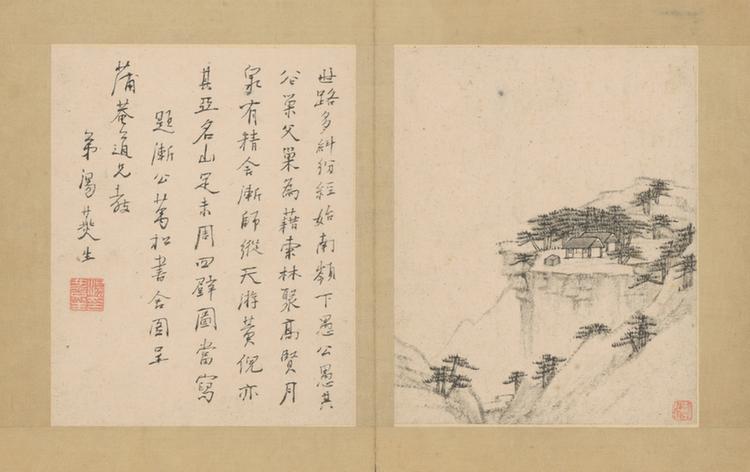 世路多糾紛經始南嶺下愚公愚其
谷巢父巢為藉棗林聚高賢月
泉有精舍漸師縱天游黃倪亦
其亞名山足未周四壁圖當寫
題漸公萬松書舍圖呈
蒲菴道兄教
弟湯燕生